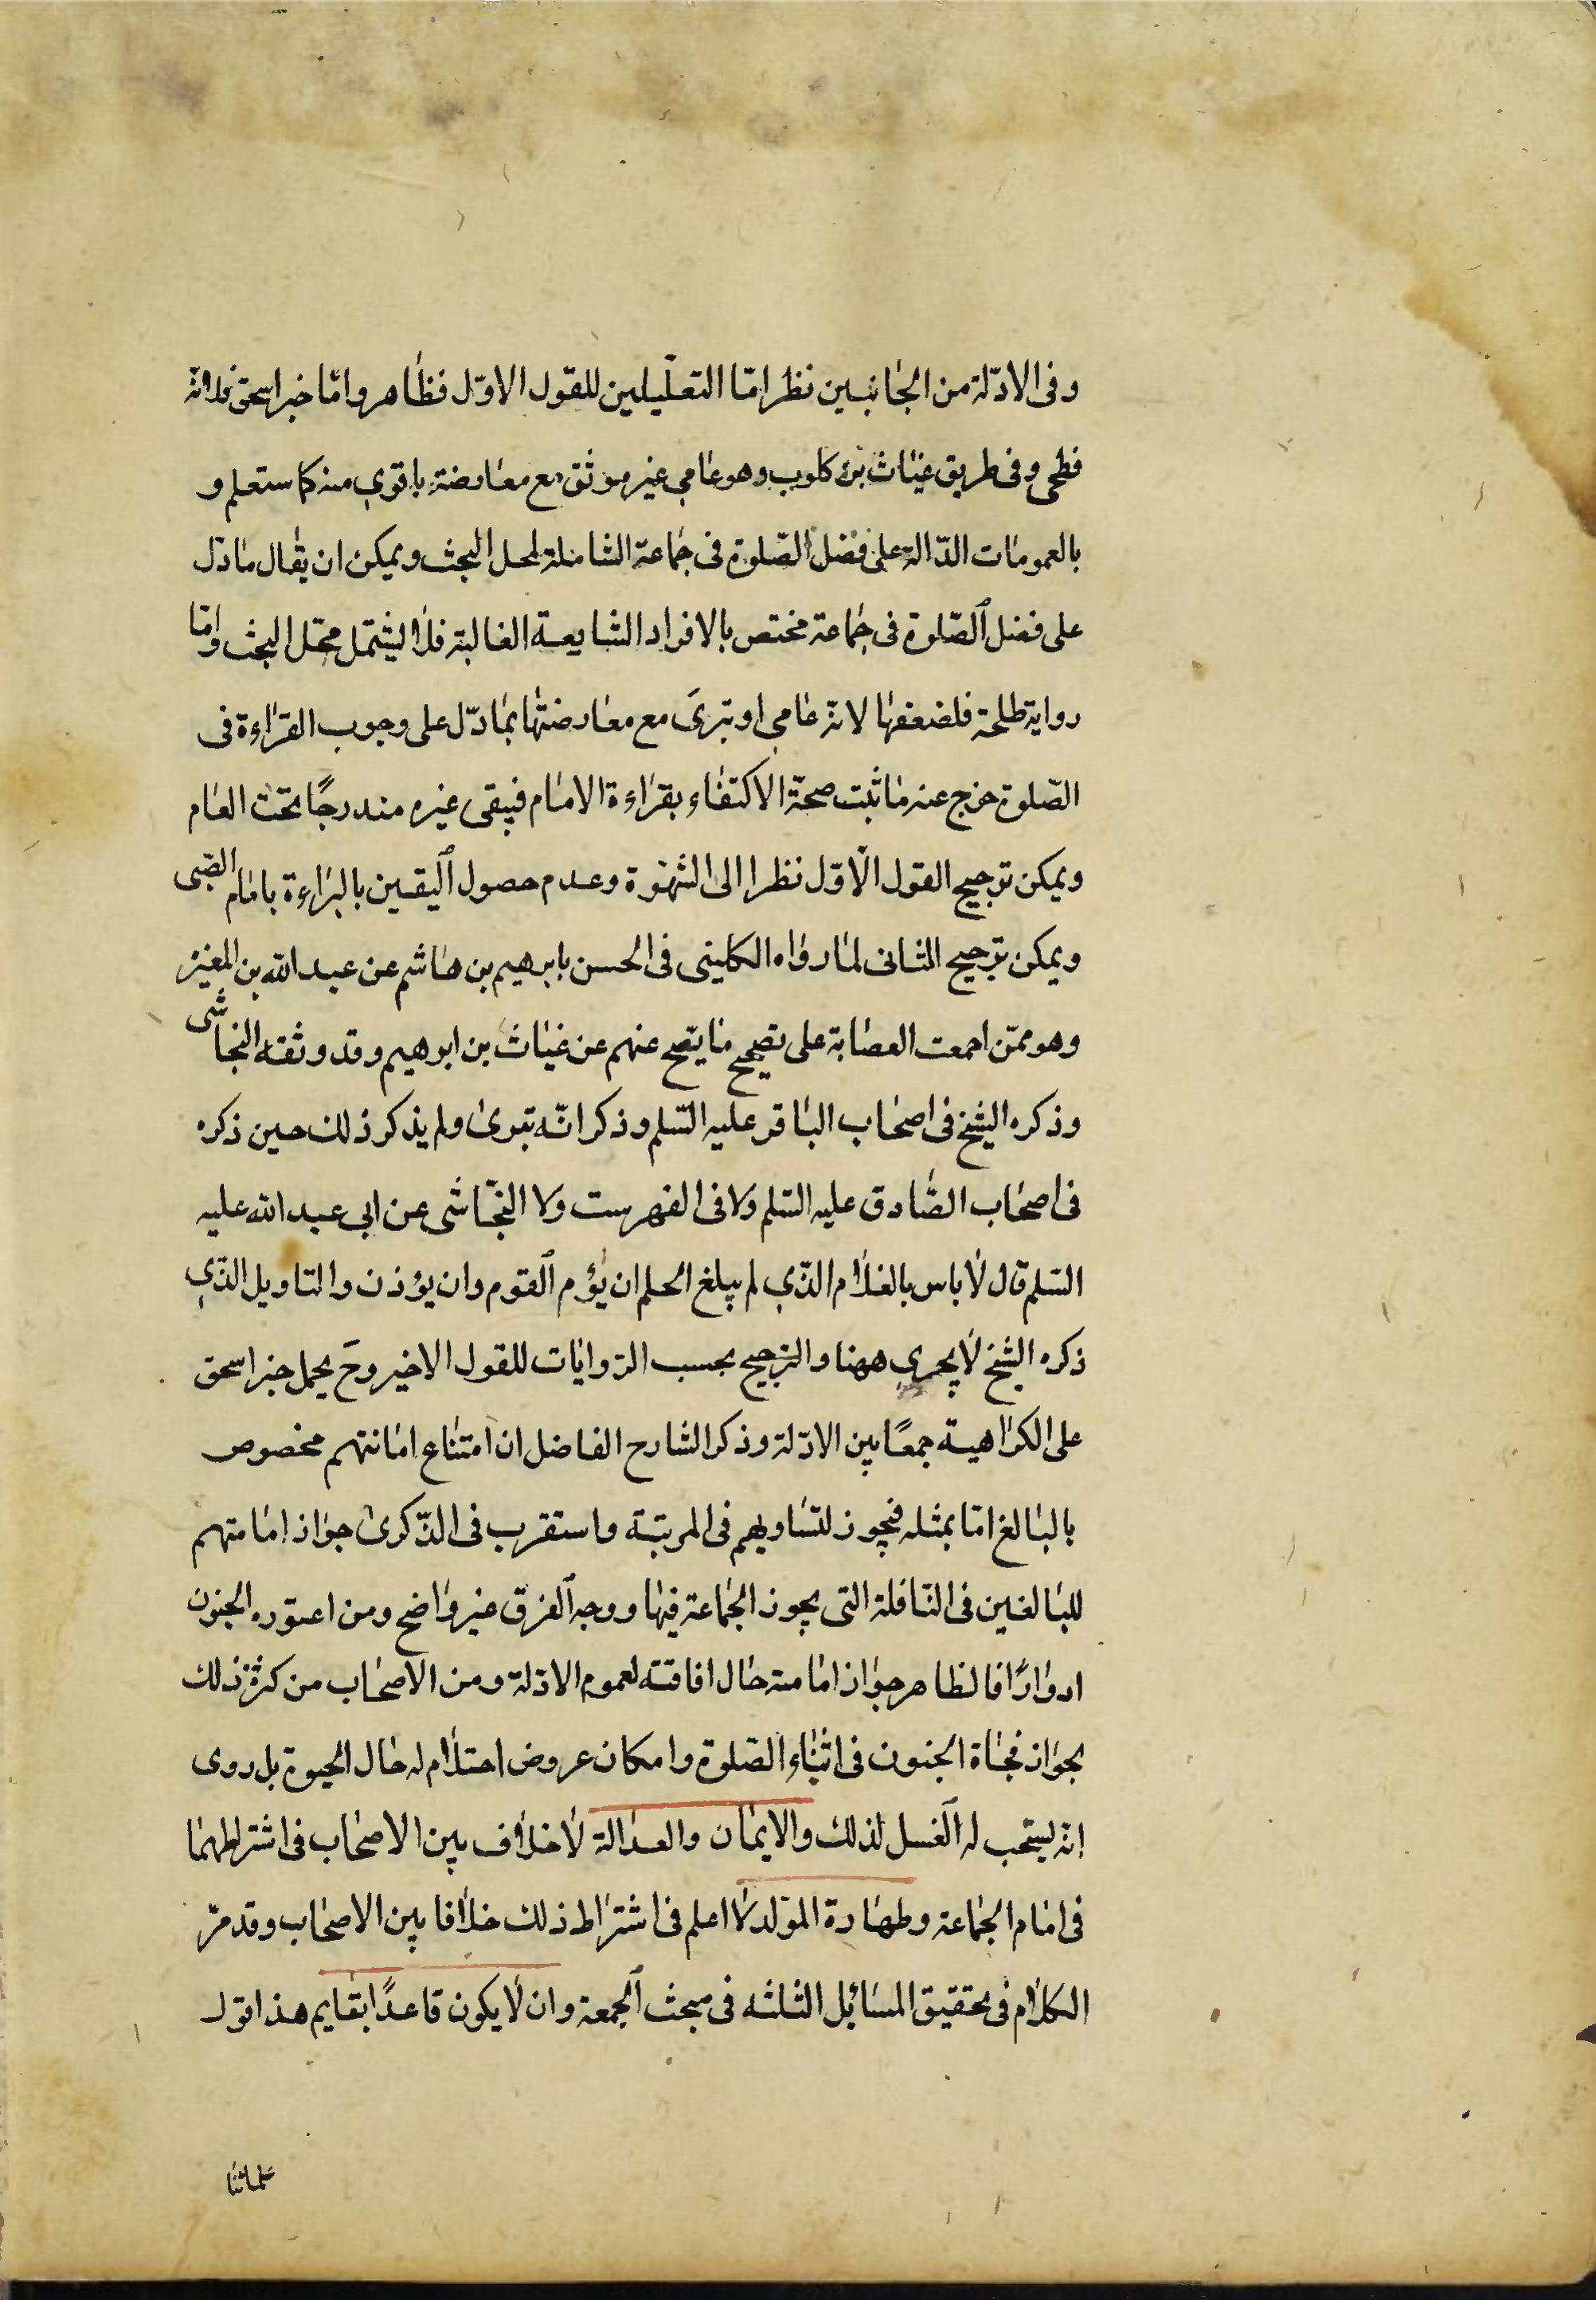 وفى الادّلة من الجانبين نظر امّا التعليلين للقول الاوّل فظاهر وامّا خبر اسحق فلانّه
فطحى وفى طريق غياث بن كلوب وهو عامى غير موثق مع معارضة باقوى منه كما ستعلم و
بالعمومات الدّالة على فضل الصّلوة فى جماعة الشاملة لمحل البحث ويمكن ان يقال ما دلّ
على فضل الصّلوة فى جماعة مختص بالافراد الشايعة الغالبة فلا ليشتمل محّل البحث وامّا
رواية طلحة فلضعفها لانّه عامى او تبرى مع معارضتها بما دّل على وجوب القراءة فى
الصّلوة خرج عنه ما ثبت صحّة الاكتفاء بقراءة الامام فيبقى غيره مندرجًا تحت العام
ويمكن ترجيح القول الاوّل نظرا الى الشهرة وعدم حصول اليقين بالبراءة بامام الصّبى
ويمكن ترجيح الثانى لما رواه الكلينى فى الحسن بابرهيم بن هاشم عن عبد الله بن المغيرة
وهو ممّن اجمعت العصابة على تصحيح ما يصّح عنهم عن غياث بن ابرهيم وقد وثقه النجاشى
وذكره الشيخ فى اصحاب الباقر عليه السّلم وذكر انّه تبرى ولم يذكر ذلك حين ذكره
فى اصحاب الصّادق عليه السّلم ولا فى الفهرست ولا النجّاشى عن ابى عبد الله عليه
السّلم قال لا باس بالغلام الذّى لم يبلغ الحلم ان يؤم القوم وان يؤذن والتاويل الذّى
ذكره الشيخ لا يجرى ههنا والترجيح بحسب الرّوايات للقول الاخير وحَ يحمل خبر اسحق
على الكراهية جمعًا بين الادّلة وذكر الشارح الفاضل ان امتناع امامتهم مخصوص
بالبالغ امّا بمثله فيجوز لتساويهم فى المرتبة واستقرب فى الذّكرى جواز امامتهم
للبالغين فى النّافلة التى يجوز الجماعة فيها ووجه الفرق غير واضح ومن اعتوره الجنون
ادوارًا فالظاهر جواز امامته حال افاقته لعموم الادّلة ومن الاصحاب من كره ذلك
بجواز فجاة الجنون فى اثناء الصّلوة وامكان عروض احتلام له حال الحيوة بل روى
انّه يستحب له الغسل لذلك والايمان والعدالة لا خلاف بين الاصحاب فى اشتراطهما
فى امام الجماعة وطهارة المولد لا اعلم فى اشتراط ذلك خلافا بين الاصحاب وقد مرّ
الكلام فى تحقيق المسائل الثلثه فى مبحث الجمعة وان لا يكون قاعدًا بقايم هذا قول
علمائنا